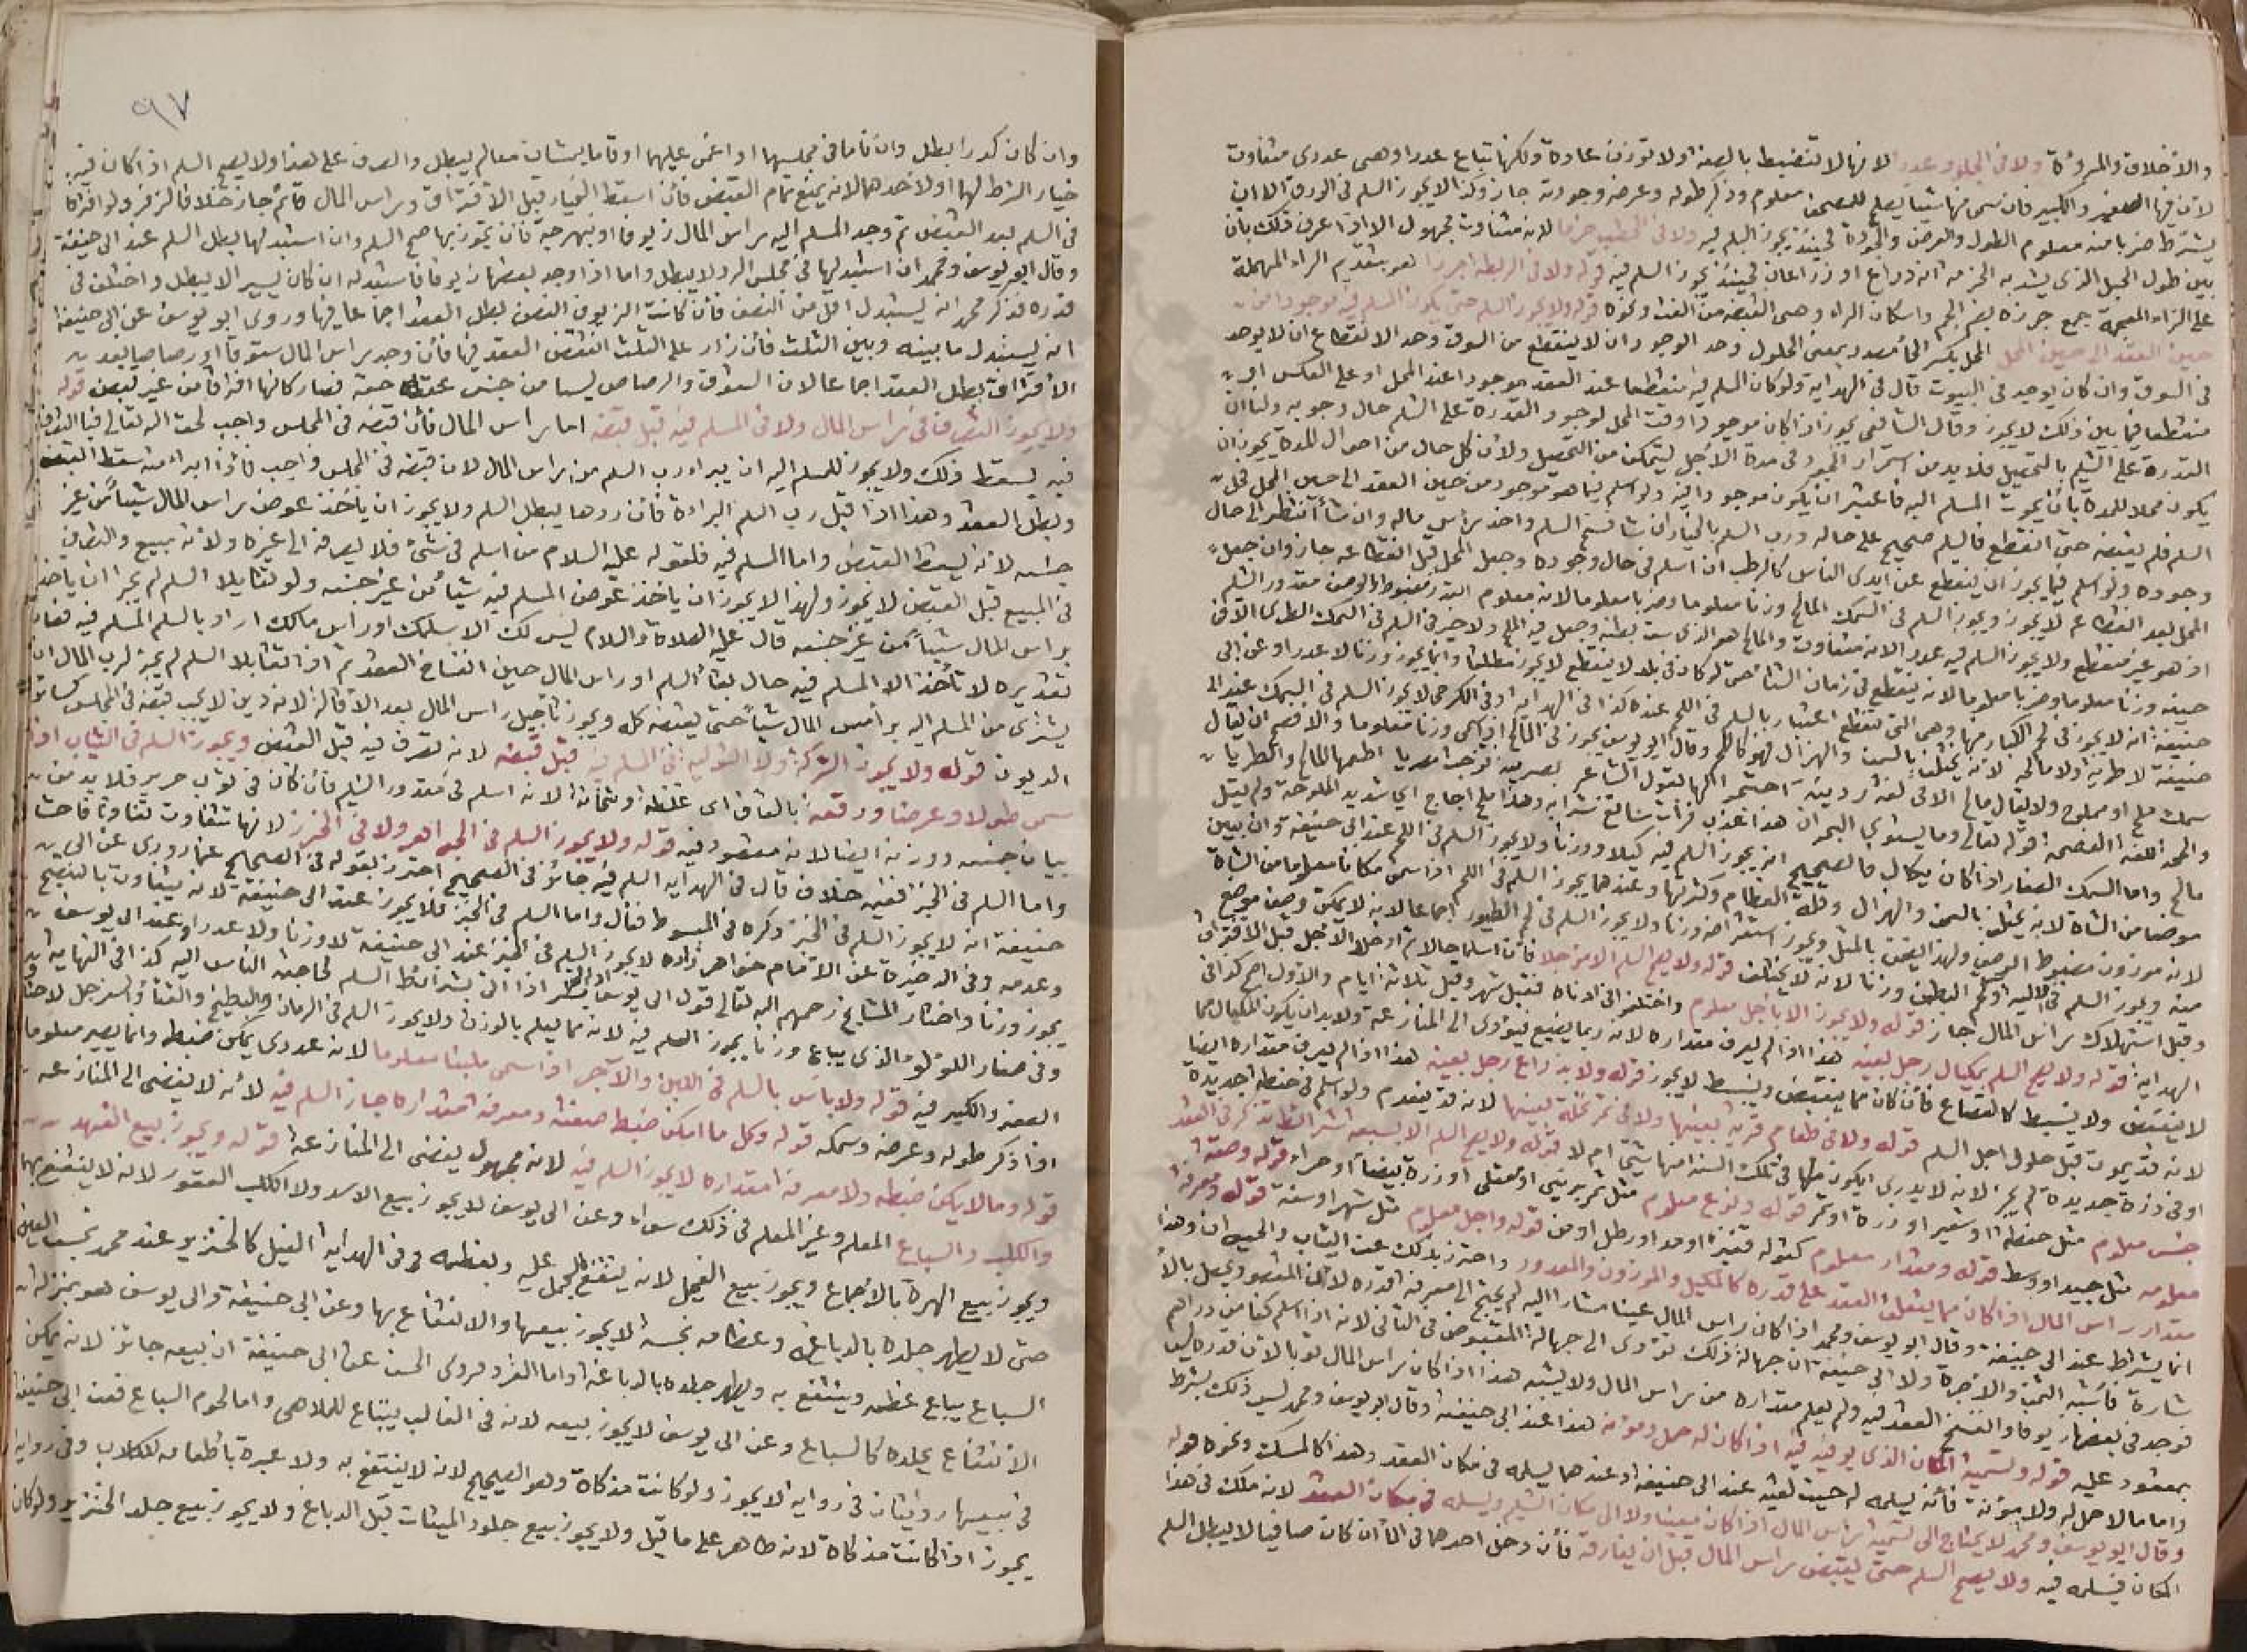 والأخلاق والمروءة ولا في الجلود عددا لانها لا تنضبط بالصفة ولا توزن عادة ولكنها تباع عددا وهي عددي متفاوت
لأن فيها الصغير والكبير فان سمى منها شيئا يصلح للمصحف معلوم وذكر طوله وعرضه وجودته جاز وكذا لا يجوز السلم في الورق الا ان
يشترط ضربا منه معلوم الطول والعرض والجودة فحينئذ يجوز السلم فيه ولا في الحطب حزما لانه متفاوت مجهول الا اذا عرف ذلك بان
بين طول الحبل الذي يشد به الحزمة انه ذراع او ذراعان فحينئذ يجوز السلم فيه قوله ولا في الرطبة جرزا هو بتقديم الراء المهملة
على الزاء المعجمة جمع جرزة بضم الجيم واسكان الراء وهي القبضة من القت ونحوه قوله ولا يجوز السلم حتى يكون المسلم فيه موجودا من
حين العقد الى حين المحل المحل بكسر الحاء مصدر بمعنى الحلول وحد الوجود ان لا ينقطع من السوق وحد الانقطاع ان لا يوجد
في السوق وان كان يوجد في البيوت قال في الهداية ولو كان المسلم فيه منقطعا عند العقد موجودا عند المحل او على العكس او
منقطعا فيما بين ذلك لا يجوز وقال الشافعي يجوز اذا كان موجودا وقت المحل لوجود القدرة على التسليم حال وجوبه ولنا ان
القدرة على التسليم بالتحصيل فلا بد من استمرار الوجود في مدة الأجل ليتمكن من التحصيل ولان كل حال من احوال المدة يجوز ان
يكون محلا للمدة بأن يموت المسلم اليه فاعتبر ان يكون موجودا فيه ولو اسلم فيما هو موجود من حين العقد الى حين المحل فحل
السلم فلم يقبضه حتى انقطع فالسلم صحيح على حاله ورب السلم بالخيار ان شاء فسخ السلم واخذ براس ماله وان شاء انتظر الى حال
وجوده ولو اسلم فيما يجوز ان ينقطع عن ايدي الناس كالرطب ان اسلم في حال وجوده وجعل المحل قبل انقطاعه جاز وان جعل
المحل بعد انقطاعه لا يجوز ويجوز السلم في السمك المالح وزنا معلوما وضربا معلوما لانه معلوم القدر مضبوط الوصف مقدور التسليم
اذ هو غير منقطع ولا يجوز السلم فيه عددا لانه متفاوت والمالح هو الذي شق بطنه وجعل فيه الملح ولا خير في السلم في السمك الطري الا في
حينه وزنا معلوما وضربا معلوما لانه ينقطع في زمان الشتاء حتى لو كان في بلد لا ينقطع لا يجوز مطلقا وانما يجوز وزنا لا عددا وعن ابي
حنيفة انه لا يجوز في لحم الكبار منها وهي التي تقطع اعتبارا بالسلم في اللحم عنده كذا في الهداية وفي الكرخي لا يجوز السلم في السمك عند ابي
حنيفة لا طريه ولا مالحه لانه يختلف بالسمن والهزال فهو كاللحم وقال ابو يوسف يجوز في المالح اذا سمى وزنا معلوما والأفصح ان يقال
سمك مليح او مملوح ولا يقال مالح الا في لغة ردية احتجوا لها بقول الشاعر بصرية تزوجت بصريا اطعمها المالح والطريا
والحجة للغة الفصحى قوله تعالى وما يستوي البحران هذا عذب فرات سائغ شرابه وهذا ملح اجاج اي شديد الملوحة ولم يقل
مالح واما السمك الصغار اذا كان يكال فالصحيح انه يجوز السلم فيه كيلا ووزنا ولا يجوز السلم في اللحم عند ابي حنيفة وان بين
موضعا من الشاة لانه يختلف بالسمن والهزال وقلة العظام وكثرتها وعندهما يجوز السلم في اللحم اذا سمى مكانا معلوما من الشاة
لانه موزون مضبوط الوصف ولهذا يضمن بالمثل ويجوز استقراضه وزنا ولا يجوز السلم في لحم الطيور اجماعا لانه لا يمكن وصف موضع
منه ويجوز السلم في الالية وشحم البطن وزنا لانه لا يختلف قوله ولا يصح السلم الا مؤجلا فان اسلما حالا ثم ادخلا الأجل قبل الافتراق
وقبل استهلاك راس المال جاز قوله ولا يجوز الا بأجل معلوم واختلفوا في ادناه فقيل شهر وقيل ثلاثة ايام والأول اصح كذا في
الهداية قوله ولا يصح السلم بمكيال رجل بعينه هذا اذا لم يعرف مقداره لانه ربما يضيع فيؤدي الى المنازعة ولا بد ان يكون المكيال مما
لا ينقبض ولا ينبسط كالقصاع فان كان مما ينقبض وينبسط لا يجوز قوله ولا بذراع رجل بعينه هذا اذا لم يعرف مقداره ايضا
لانه قد يموت قبل حلول اجل السلم قوله ولا في طعام قرية بعينها ولا في ثمرة نخلة بعينها لانه قد ينعدم ولو اسلم في حنطة جديدة
او في ذرة جديدة لم يجز لانه لا يدري ايكون منها في تلك السنة منها شيء ام لا قوله ولا يصح السلم الا بسبعة شرائط تذكر في العقد
جنس معلوم مثل حنطة او شعير او ذرة او تمر قوله ونوع معلوم مثل تمر برني او معقلي او ذرة بيضاء او حمراء قوله وصفة
معلومة مثل جيد او وسط قوله ومقدار معلوم كقوله قفيزا او مدا او رطل او من قوله واجل معلوم مثل شهر او سنة قوله ومعرفة
مقدار راس المال اذا كان مما يتعلق العقد على قدره كالمكيل والموزون والمعدود واحترز بذلك عن الثياب والحيوان وهذا
انما يشترط عند ابي حنيفة وقال ابو يوسف ومحمد اذا كان راس المال عينا مشارا اليه لم يحتج الى معرفة قدره لان المقصود يحصل بالا
شارة فأشبه الثمن والاجرة ولابي حنيفة ان جهالة ذلك تؤدي الى جهالة المقبوض في الثاني لانه اذا اسلم كفا من دراهم
فوجد في بعضها زيوفا وانفسخ العقد فيه ولم يعلم مقداره من راس المال ولا يشبه هذا اذا كان راس المال ثوبا لان قدره ليس
بمعقود عليه قوله وتسمية المكان الذي يوفيه فيه اذا كان له حمل ومؤنة هذا عند ابي حنيفة وقال ابو يوسف ومحمد ليس ذلك بشرط
واما ما لا حمل له ولا مؤنة فانه يسلمه له حيث لقيه عند ابي حنيفة وعندهما يسلمه في مكان العقد وهذا كالمسك ونحوه قوله
وقال ابو يوسف ومحمد لا يحتاج الى تسمية راس المال اذا كان معينا ولا الى مكان التسليم ويسلمه في مكان العقد لانه ملك في هذا
المكان فيسلمه فيه ولا يصح السلم حتى يقبض راس المال قبل ان يفارقه فان دخل احدهما في الماء ان كان صافيا لا يبطل السلم
٩٧
وان كان كدرا بطل وان ناما في مجلسهما او اغمي عليهما او قاما يمشيان معا لم يبطل والصرف على هذا ولا يصح السلم اذا كان فيه
خيار الشرط لهما او لاحدهما لانه يمنع تمام القبض فان اسقط الخيار قبل الافتراق وراس المال قائم جاز خلافا لزفر ولو افترقا
في السلم بعد القبض ثم وجد المسلم اليه راس المال زيوفا او نبهرجة فان تجوز بها صح السلم وان استبدلها بطل السلم عند ابي حنيفة
وقال ابو يوسف ومحمد ان استبدلها في مجلس الرد لا يبطل واما اذا وجد بعضها زيوفا فاستبدله ان كان يسيرا لا يبطل واختلف في
قدره فذكر محمد انه يستبدل اقل من النصف فان كانت الزيوف النصف بطل العقد اجماعا فيها وروى ابو يوسف عن ابي حنيفة
انه يستبدل ما بينه وبين الثلث فان زاد على الثلث انتقض العقد فيها فان وجد راس المال ستوقا او رصاصا بعد
الافتراق بطل العقد اجماعا لان الستوق والرصاص ليسا من جنس حقه فصار كانهما افترقا من غير قبض قوله
ولا يجوز التصرف في راس المال ولا في المسلم فيه قبل قبضه اما راس المال فان قبضه في المجلس واجب لحق الله تعالى فبالتصرف
فيه يسقط ذلك ولا يجوز للمسلم اليه ان يبرا رب السلم من راس المال لان قبضه في المجلس واجب فاذا ابراه منه سقط القبض
وبطل العقد وهذا اذا قبل رب السلم البراءة فان ردها لم يبطل السلم ولا يجوز ان يأخذ عوض راس المال شيئا من غير
جنسه لانه يسقط القبض واما المسلم فيه فلقوله عليه السلام من اسلم في شيء فلا يصرفه الى غيره ولانه مبيع والتصرف
في المبيع قبل القبض لا يجوز ولهذا لا يجوز ان يأخذ عوض المسلم فيه شيئا من غير جنسه ولو تقايلا السلم لم يجز ان يأخذ
براس المال شيئا من غير جنسه قال عليه الصلاة والسلام ليس لك الا سلمك او راس مالك اراد بالسلم المسلم فيه فصار
تقديره لا تأخذ الا المسلم فيه حال بقاء السلم او راس المال حين انفساخ العقد ثم اذا تقايلا السلم لم يجز لرب المال ان
يشتري من المسلم اليه براس المال شيئا حتى يقبضه كله ويجوز تأجيل راس المال بعد الاقالة لانه دين لا يجب قبضه في المجلس كسائر
الديون قوله ولا يجوز الشركة ولا التولية في المسلم فيه قبل قبضه لانه تصرف فيه قبل القبض ويجوز السلم في الثياب اذا
سمى طولا وعرضا ورقعة بالقاف اي غلظة وثخانة لانه اسلم في مقدور التسليم فان كان في ثوب حرير فلا بد من
بيان جنسه ووزنه ايضا لانه مقصود فيه قوله ولا يجوز السلم في الجواهر ولا في الخرز لانها تتفاوت تفاوتا فاحشا
واما السلم في الخبز ففيه خلاف قال في الهداية السلم فيه جائز في الصحيح احترز بقوله في الصحيح عما روي عن ابي
حنيفة انه لا يجوز السلم في الخبز ذكره في المبسوط فقال واما السلم في الخبز فلا يجوز عند ابي حنيفة لانه يتفاوت بالنضج
وعدمه وفي الذخيرة عن الامام خواهر زاده لا يجوز السلم في الخبز عند ابي حنيفة لا وزنا ولا عددا وعند ابي يوسف
يجوز وزنا واختار المشايخ رحمهم الله تعالى قول ابي يوسف اذا اتى بشرائط السلم لحاجة الناس اليه كذا في النهاية
وفي صغار اللؤلؤ الذي يباع وزنا يجوز السلم فيه لانه مما يعلم بالوزن ولا يجوز السلم في الرمان والبطيخ والقثاء والسفرجل لاختلاف
الصغر والكبر فيه قوله ولا باس بالسلم في اللبن والآجر اذا سمى ملبنا معلوما لانه عددي يمكن ضبطه وانما يصير معلوما
اذا ذكر طوله وعرضه وسمكه قوله وكل ما امكن ضبط صفته ومعرفة مقداره جاز السلم فيه لأنه لا يفضي الى المنازعة
قوله وما لا يمكن ضبطه ولا معرفة مقداره لا يجوز السلم فيه لانه مجهول يفضي الى المنازعة قوله ويجوز بيع الفهد
والكلب والسباع المعلم وغير المعلم في ذلك سواء وعن ابي يوسف لا يجوز بيع الاسد ولا الكلب العقور لانه لا ينتفع بهما
ويجوز بيع الهرة بالاجماع ويجوز بيع الفيل لانه ينتفع بالحمل عليه وبعظمه وفي الهداية الفيل كالخنزير عند محمد نجس العين
حتى لا يطهر جلده بالدباغ وعظامه نجسة لا يجوز بيعها والانتفاع بها وعن ابي حنيفة وابي يوسف هو بمنزلة
السباع يباع عظمه وينتفع به ويطهر جلده بالدباغة واما القرد فروى الحسن عن ابي حنيفة ان بيعه جائز لانه يمكن
الانتفاع بجلده كالسباع وعن ابي يوسف لا يجوز بيعه لانه في الغالب يبتاع للملاهي واما لحوم السباع فعن ابي حنيفة
في بيعها روايتان في رواية لا يجوز ولو كانت مذكاة وهو الصحيح لانه لا ينتفع به ولا عبرة باطعامه للكلاب وفي رواية
يجوز اذا كانت مذكاة لانه طاهر على ما قيل ولا يجوز بيع جلود الميتات قبل الدباغ ولا يجوز بيع جلد الخنزير ولو كان